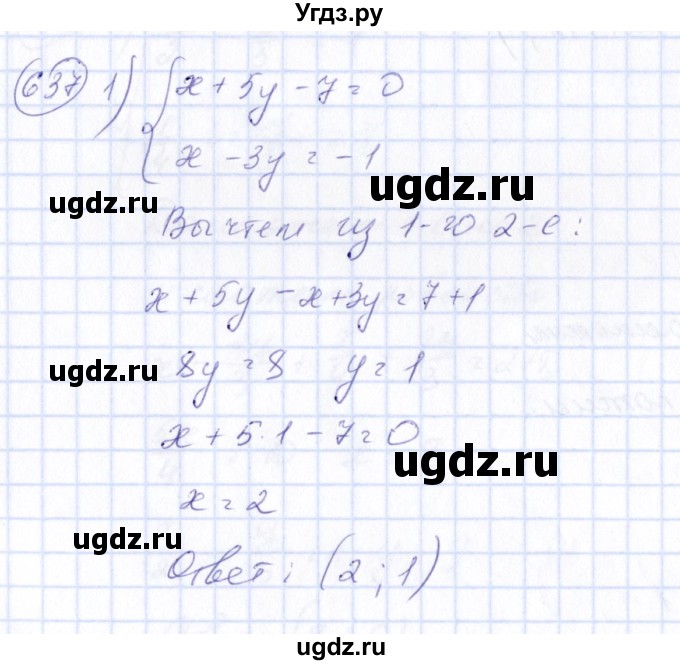 Угдз.ру
637 1) { x + 5y - 7 = 0
x - 3y = -1
ugdz.ru
ugdz.ru
Вычтем из 1-го 2-е:
x + 5y - x + 3y = 7 + 1
ugdz.ru
8y = 8 y = 1
x + 5·1 - 7 = 0
ugdz.ru
x = 2
ugdz.ru
Ответ: (2; 1)
ugdz.ru